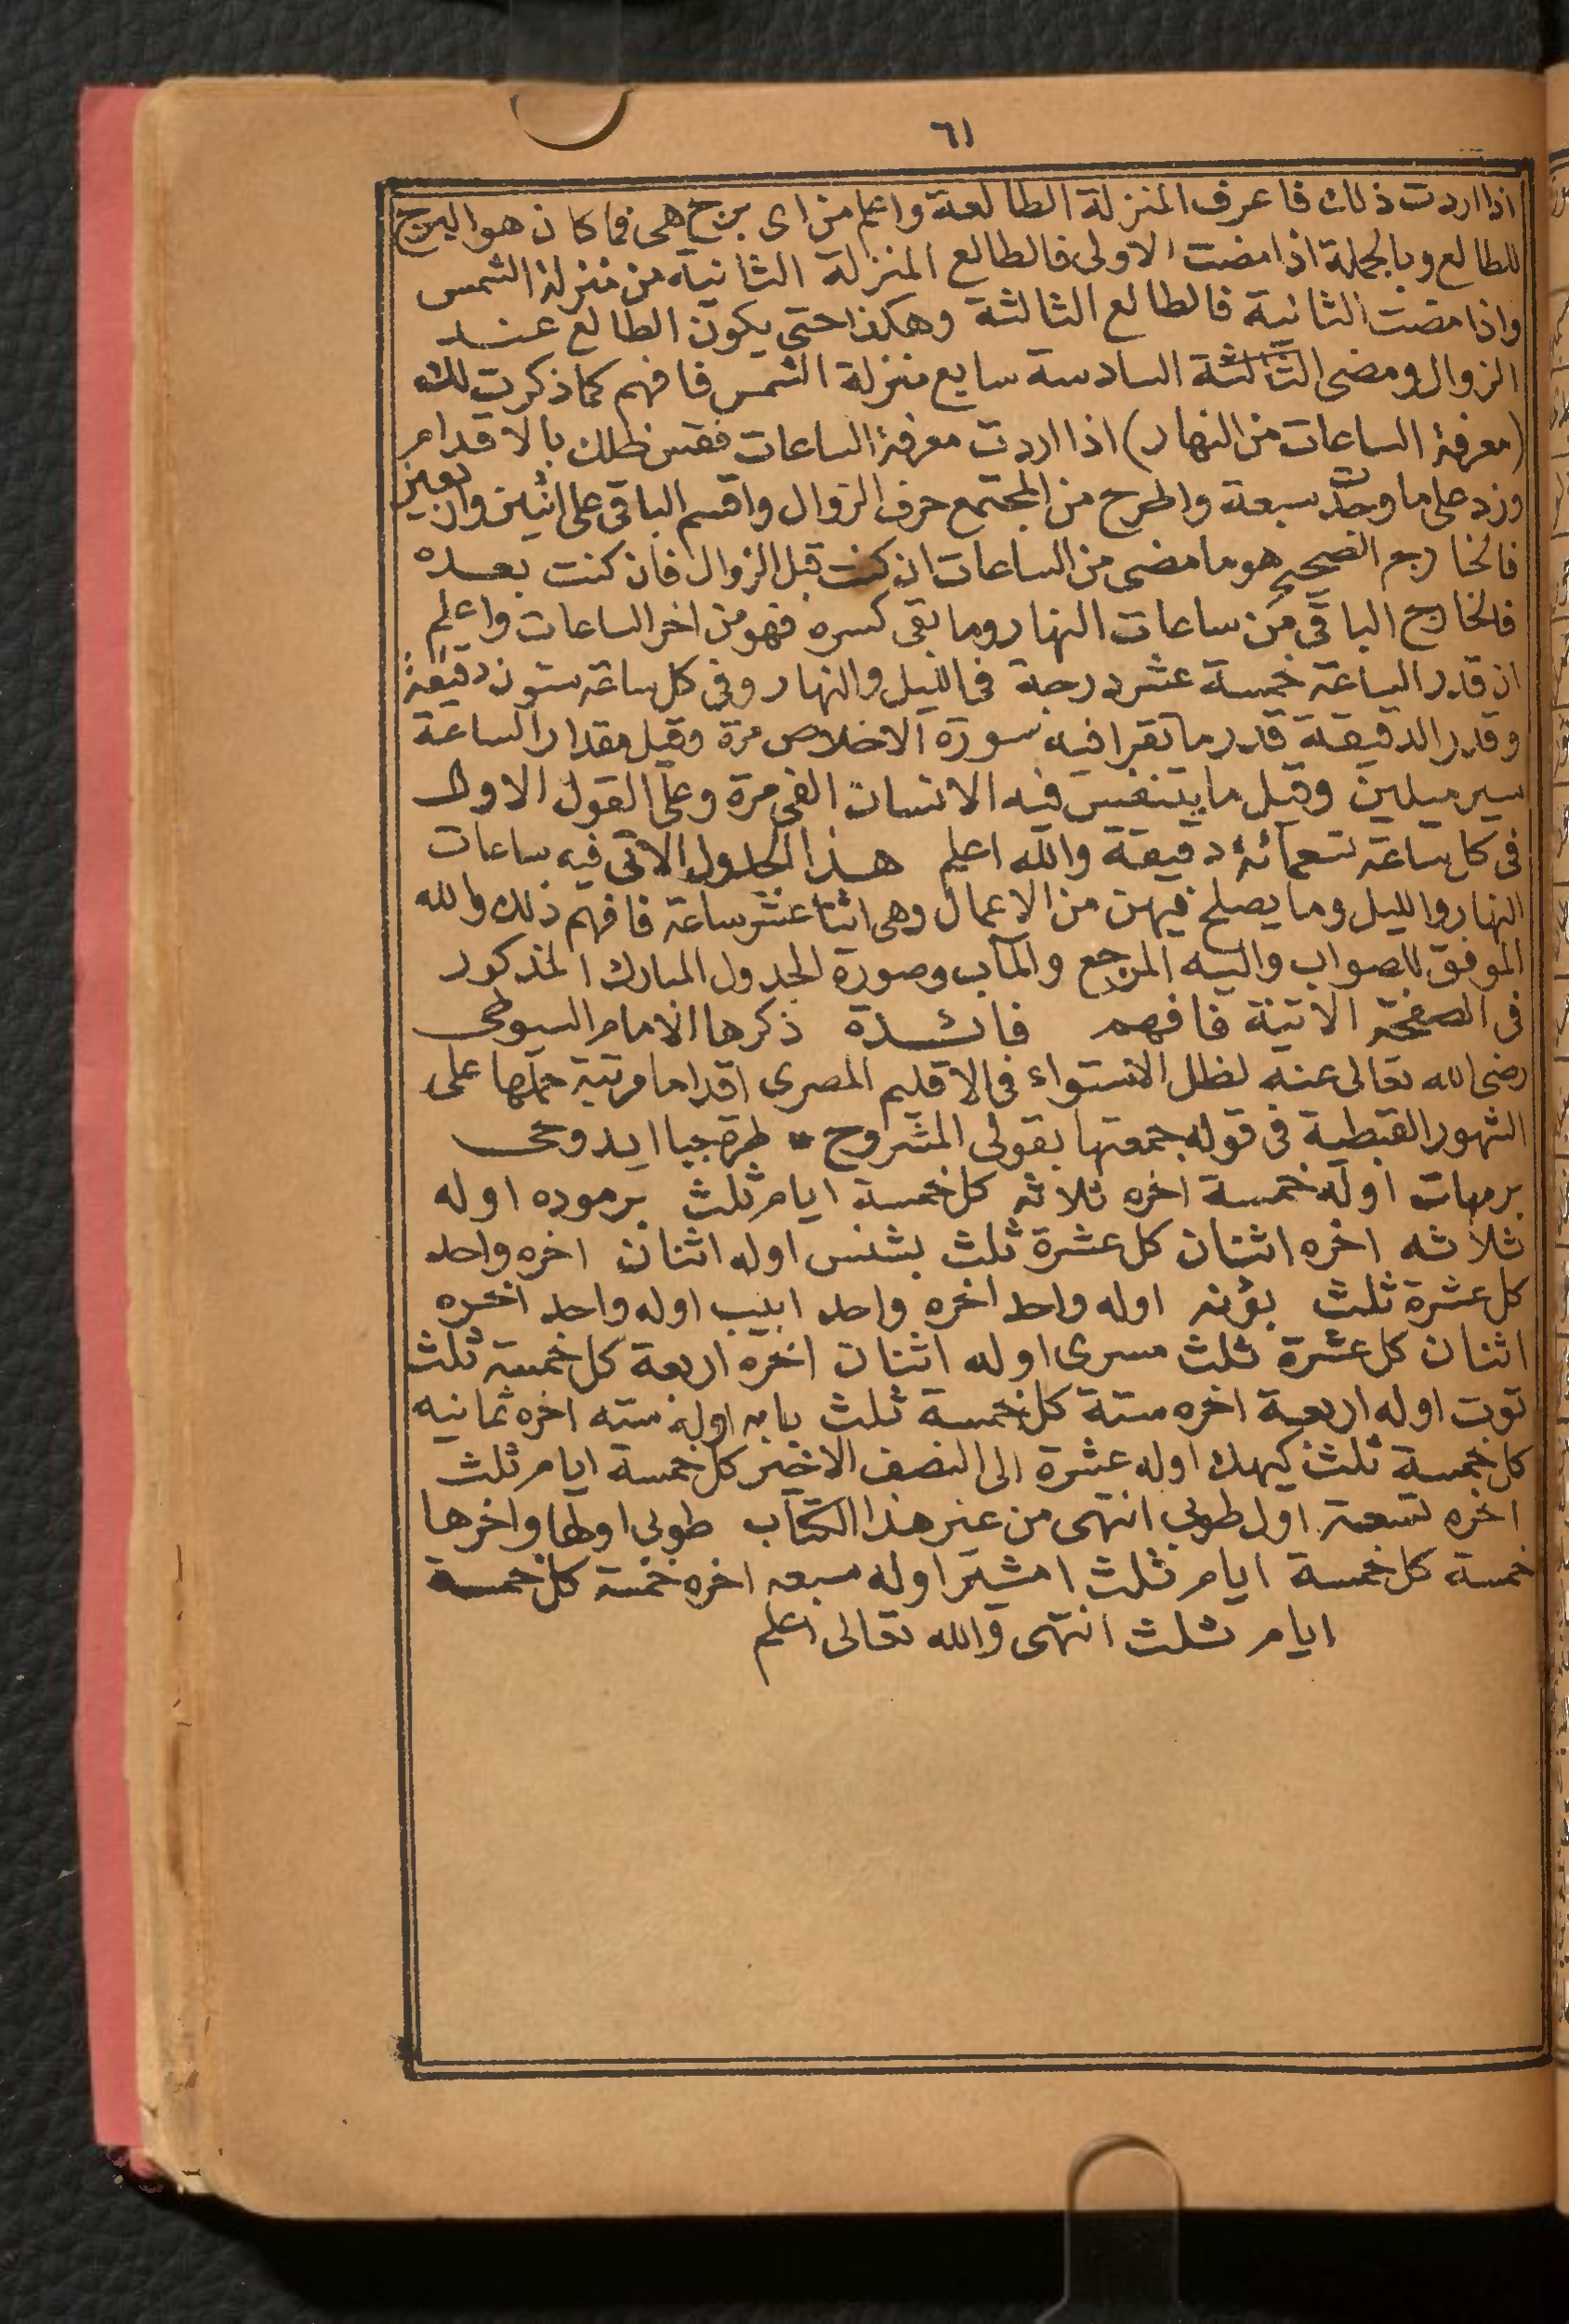 ٦١
اذا اردت ذلك فاعرف المنزلة الطالعة واعلم من اى برج هى فما كان هو البرج
للطالع وبالجملة اذا مضت الاولى فالطالع المنزلة الثانية من منزلة الشمس
واذا مضت الثانية فالطالع الثالثة وهكذا حتى يكون الطالع عند
الزوال ومضى الثالثة السادسة سابع منزلة الشمس فافهم كما ذكرت لك
(معرفة الساعات من النهار) اذا اردت معرفة الساعات فقس ظلك بالاقدام
وزد على ما وجد سبعة واطرح من المجتمع حرف الزوال واقسم الباقى على اثنين واربعين
فالخارج الصحيح هو ما مضى من الساعات ان كنت قبل الزوال فان كنت بعده
فالخارج الباقى من ساعات النهار وما بقى كسره فهو من اخر الساعات واعلم
ان قدر الساعة خمسة عشر درجة فى الليل والنهار وفى كل ساعة ستون دقيقة
وقدر الدقيقة قدر ما تقرا فيه سورة الاخلاص مرة وقيل مقدار الساعة
سير ميلين وقيل ما يتنفس فيه الانسان الفى مرة وعلى القول الاول
فى كل ساعة تسعمائة دقيقة والله اعلم هذا الجدول الاتى فيه ساعات
النهار والليل وما يصلح فيهن من الاعمال وهى اثنا عشر ساعة فافهم ذلك والله
الموفق للصواب واليه المرجع والمآب وصورة الجدول المبارك المذكور
فى الصفحة الاتية فافهم فائدة ذكرها الامام السيوطى
رضى الله تعالى عنه لظل الاستواء فى الاقليم المصرى اقداما مرتبة حملها على
الشهور القبطية فى قوله جمعتها بقولى المشروح * طرة جبا ابدوحى
برمهات اوله خمسة اخره ثلاثة كل خمسة ايام ثلث برموده اوله
ثلاثه اخره اثنان كل عشرة ثلث بشنس اوله اثنان اخره واحد
كل عشرة ثلث بؤنه اوله واحد اخره واحد ابيب اوله واحد اخره
اثنان كل عشرة ثلث مسرى اوله اثنان اخره اربعة كل خمسة ثلث
توت اوله اربعة اخره ستة كل خمسة ثلث بابه اوله سته اخره ثمانيه
كل خمسة ثلث كيهك اوله عشرة الى النصف الاخير كل خمسة ايام ثلث
اخره تسعة اول طوبى انتهى من غير هذا الكتاب طوبى اولها واخرها
خمسة كل خمسة ايام ثلث امشير اوله سبعه اخره خمسة كل خمسة
ايام ثلث انتهى والله تعالى اعلم